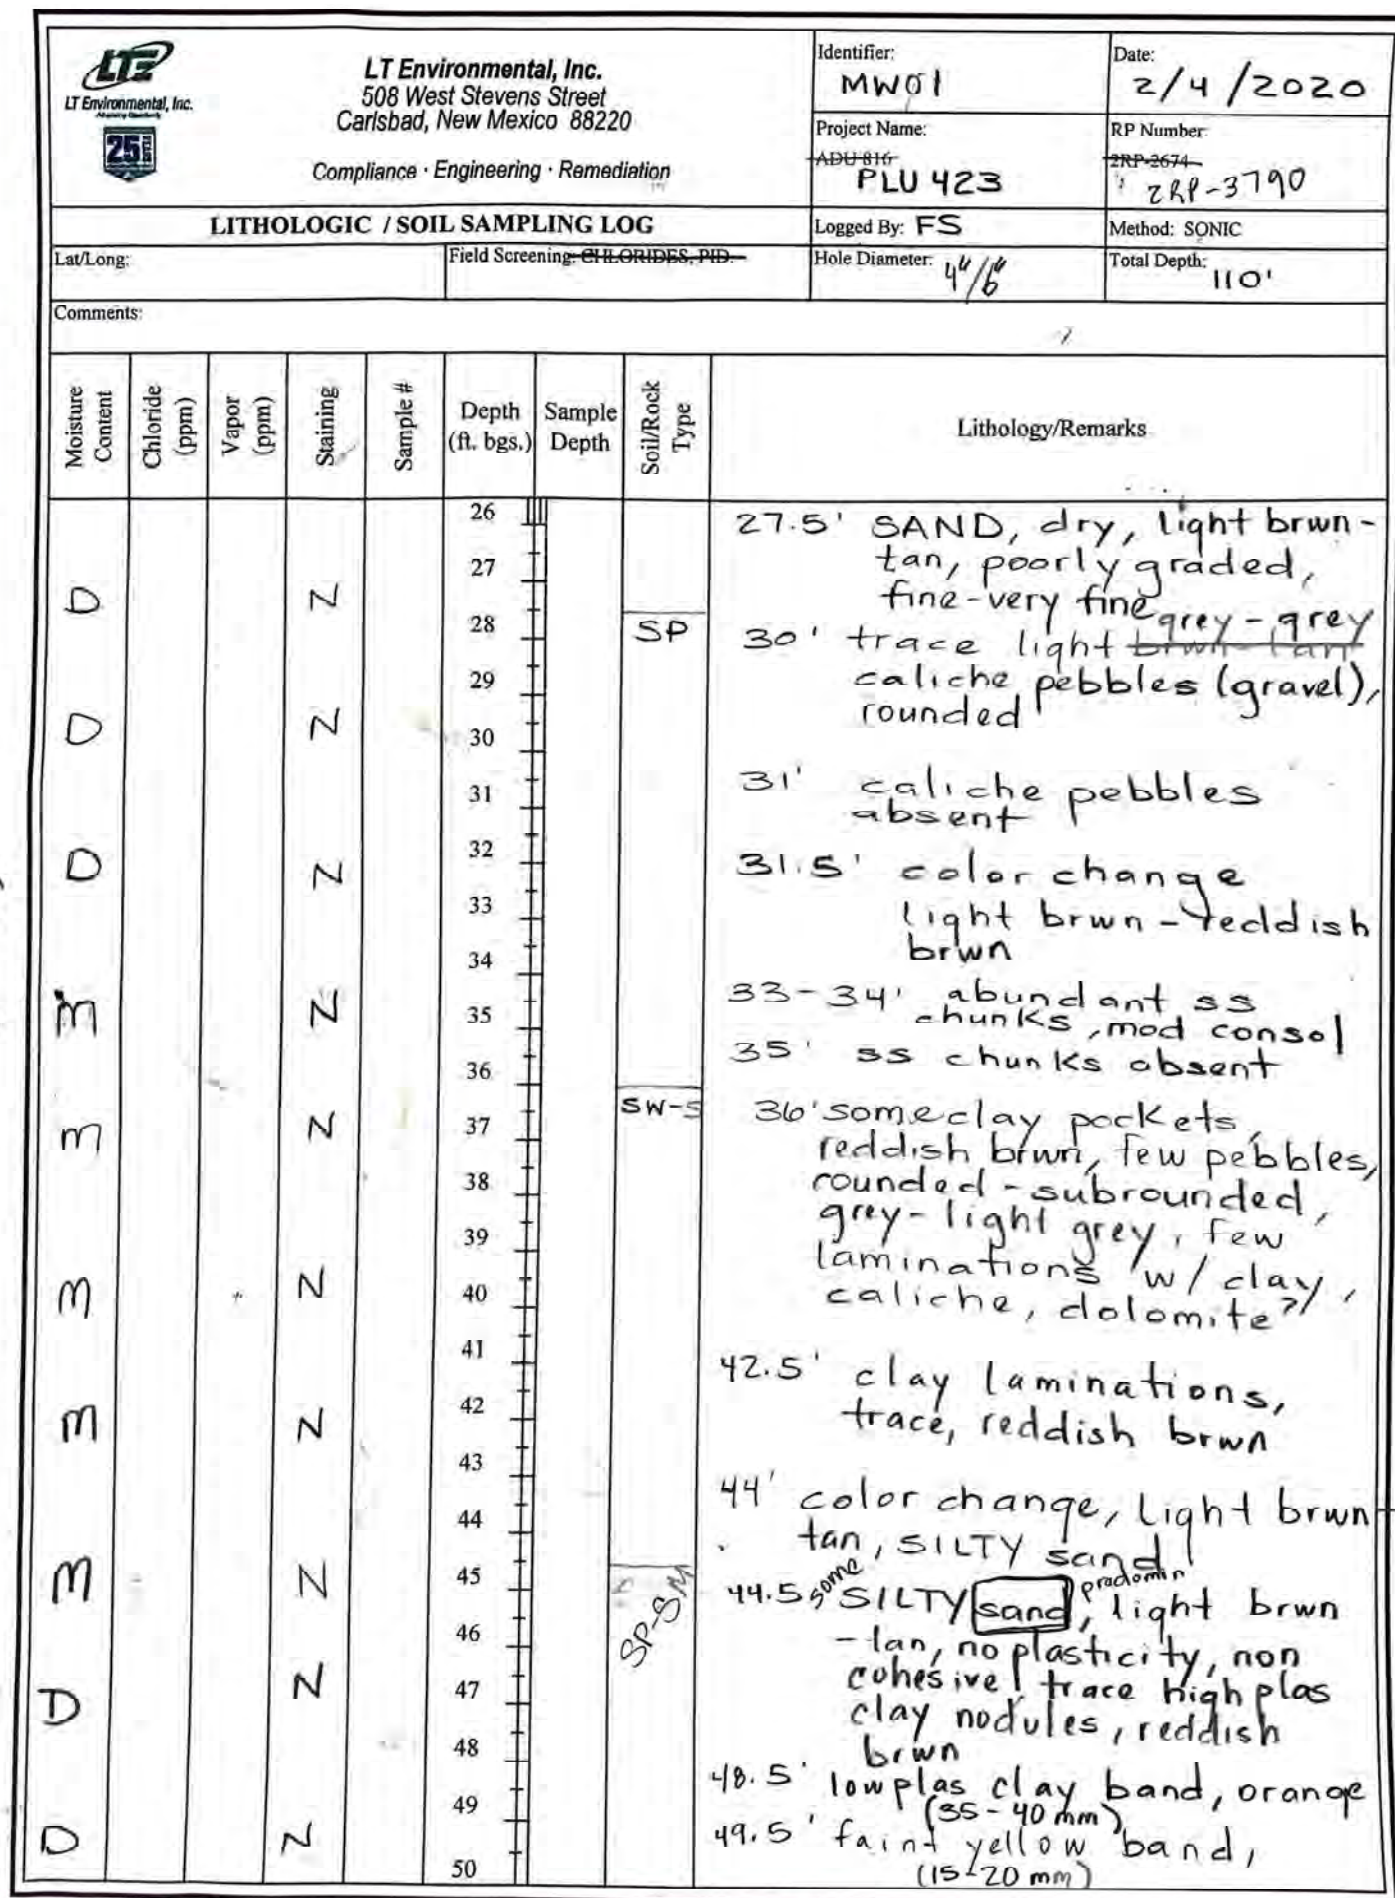 LTE
LT Environmental, Inc.
25
LT Environmental, Inc.
508 West Stevens Street
Carlsbad, New Mexico 88220
Compliance · Engineering · Remediation
Identifier:
MW01
Date:
2/4/2020
Project Name:
ADU 816
PLU 423
RP Number:
2RP-2674
2RP-3790
LITHOLOGIC / SOIL SAMPLING LOG
Logged By: FS
Method: SONIC
Lat/Long:
Field Screening: CHLORIDES, PID.
Hole Diameter: 4"/6"
Total Depth: 110'
Comments:
Moisture Content
Chloride (ppm)
Vapor (ppm)
Staining
Sample #
Depth (ft. bgs.)
Sample Depth
Soil/Rock Type
Lithology/Remarks
26
27.5' SAND, dry, light brwn-
tan, poorly graded,
27
D N
fine-very fine
28
SP
grey-grey
30' trace light brwn-tan
29
caliche pebbles (gravel),
rounded
D N
30
31
31' caliche pebbles
absent
32
D N
31.5' color change
33
light brwn-reddish
brwn
34
33-34' abundant ss
chunks, mod consol
M N
35
35' ss chunks absent
36
SW-S
36' some clay pockets,
M N
37
reddish brwn, few pebbles,
38
rounded-subrounded,
grey-light grey, few
39
laminations w/ clay,
M N
40
caliche, dolomite?
41
42.5' clay laminations,
M N
42
trace, reddish brwn
43
44' color change, light brwn-
44
tan, SILTY sand
M N
45
SP-SM
44.5 some SILTY sand, predomin light brwn
46
-tan, no plasticity, non
D N
47
cohesive, trace high plas
clay nodules, reddish
48
brwn
48.5' low plas clay band, orange
49
(35-40 mm)
D N
49.5' faint yellow band,
50
(15-20 mm)